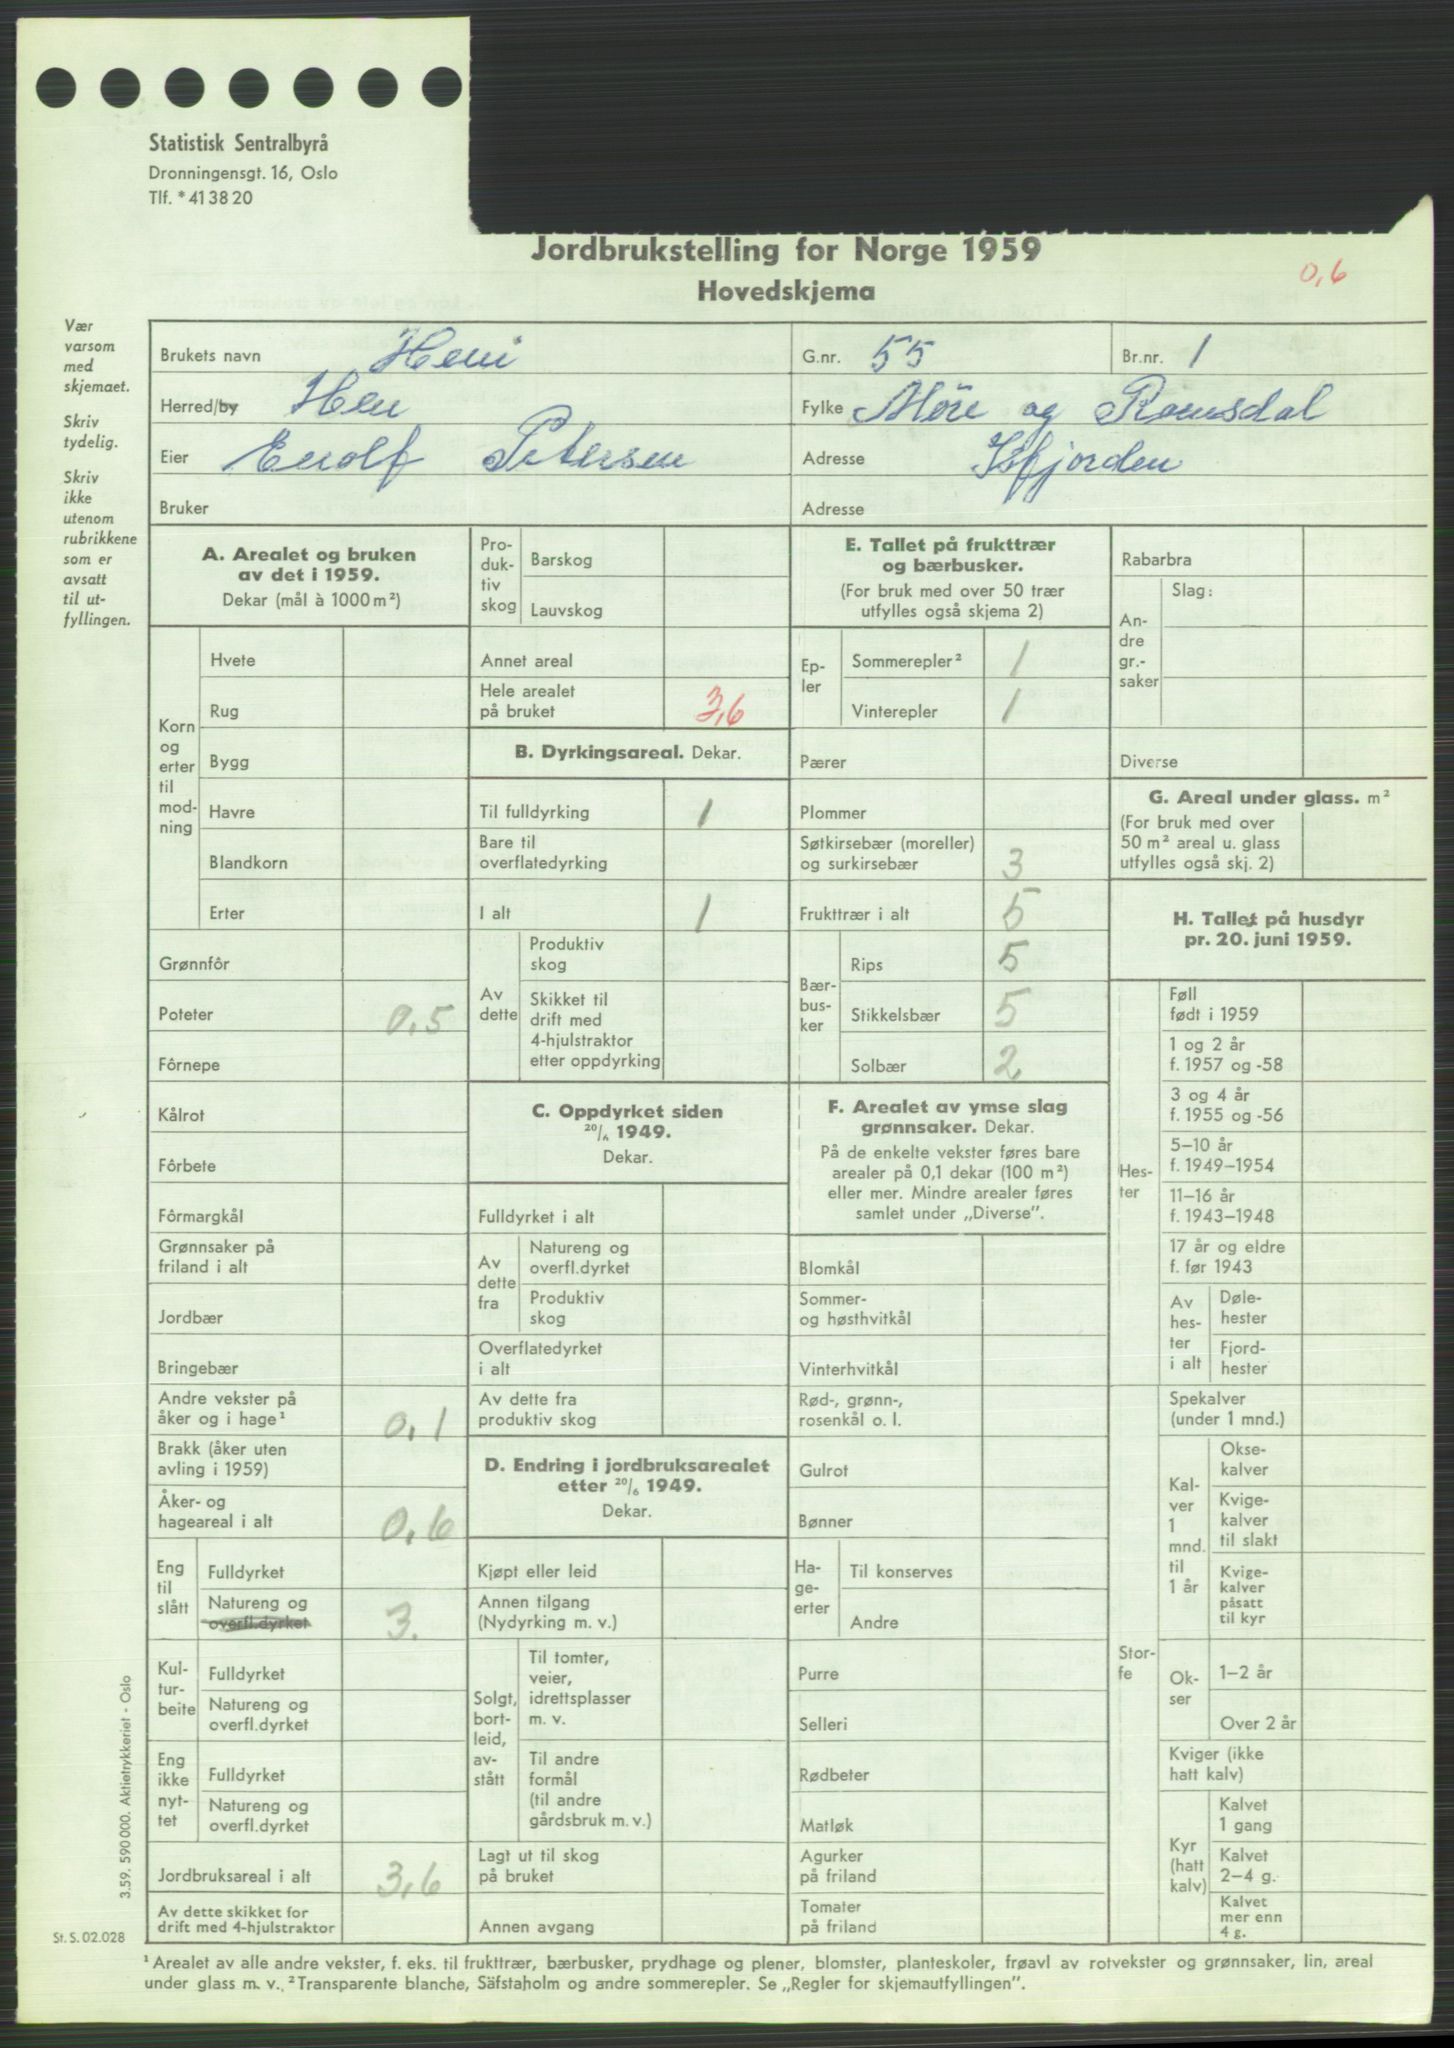 Statistisk Sentralbyrå
Dronningensgt. 16, Oslo
Tlf. *41 38 20
Jordbrukstelling for Norge 1959
Hovedskjema
0,6
Vær
varsom
med
skjemaet.
Skriv
tydelig.
Skriv
ikke
utenom
rubrikkene
som er
avsatt
til ut-
fyllingen.
Brukets navn
G.nr. 55
Br.nr. 1
Herred/by Hen
Fylke Møre og Romsdal
Eier Petersen
Adresse Isfjorden
Bruker
Adresse
A. Arealet og bruken
av det i 1959.
Dekar (mål à 1000 m²)
Korn
og
erter
til
mod-
ning
Hvete
Rug
Bygg
Havre
Blandkorn
Erter
Grønnfôr
Poteter 0,5
Fôrnepe
Kålrot
Fôrbete
Fôrmargkål
Grønnsaker på
friland i alt
Jordbær
Bringebær
Andre vekster på
åker og i hage¹ 0,1
Brakk (åker uten
avling i 1959)
Åker- og
hageareal i alt 0,6
Eng
til
slått
Fulldyrket
Natureng og
overfl.dyrket 3.
Kul-
tur-
beite
Fulldyrket
Natureng og
overfl.dyrket
Eng
ikke
nyt-
tet
Fulldyrket
Natureng og
overfl.dyrket
Jordbruksareal i alt 3,6
Av dette skikket for
drift med 4-hjulstraktor
Pro-
duk-
tiv
skog
Barskog
Lauvskog
Annet areal
Hele arealet
på bruket 3,6
B. Dyrkingsareal. Dekar.
Til fulldyrking 1
Bare til
overflatedyrking
I alt 1
Av
dette
Produktiv
skog
Skikket til
drift med
4-hjulstraktor
etter oppdyrking
C. Oppdyrket siden
20/6 1949.
Dekar.
Fulldyrket i alt
Av
dette
fra
Natureng og
overfl.dyrket
Produktiv
skog
Overflatedyrket
i alt
Av dette fra
produktiv skog
D. Endring i jordbruksarealet
etter 20/6 1949.
Dekar.
Kjøpt eller leid
Annen tilgang
(Nydyrking m. v.)
Solgt,
bort-
leid,
av-
stått
Til tomter,
veier,
idrettsplasser
m. v.
Til andre
formål
(til andre
gårdsbruk m. v.)
Lagt ut til skog
på bruket
Annen avgang
E. Tallet på frukttrær
og bærbusker.
(For bruk med over 50 trær
utfylles også skjema 2)
Ep-
ler
Sommerepler² 1
Vinterepler 1
Pærer
Plommer
Søtkirsebær (moreller)
og surkirsebær 3
Frukttrær i alt 5
Bær-
bus-
ker
Rips 5
Stikkelsbær 5
Solbær 2
F. Arealet av ymse slag
grønnsaker. Dekar.
På de enkelte vekster føres bare
arealer på 0,1 dekar (100 m²)
eller mer. Mindre arealer føres
samlet under „Diverse”.
Blomkål
Sommer-
og høsthvitkål
Vinterhvitkål
Rød-, grønn-,
rosenkål o. l.
Gulrot
Bønner
Ha-
ge-
erter
Til konserves
Andre
Purre
Selleri
Rødbeter
Matløk
Agurker
på friland
Tomater
på friland
Rabarbra
An-
dre
gr.-
saker
Slag:
Diverse
G. Areal under glass. m²
(For bruk med over
50 m² areal u. glass
utfylles også skj. 2)
H. Tallet på husdyr
pr. 20. juni 1959.
Hes-
ter
Føll
født i 1959
1 og 2 år
f. 1957 og -58
3 og 4 år
f. 1955 og -56
5–10 år
f. 1949–1954
11–16 år
f. 1943–1948
17 år og eldre
f. før 1943
Av
hes-
ter
i alt
Døle-
hester
Fjord-
hester
Stor-
fe
Spekalver
(under 1 mnd.)
Kal-
ver
1
mnd.
til
1 år
Okse-
kalver
Kvige-
kalver
til slakt
Kvige-
kalver
påsatt
til kyr
Ok-
ser
1–2 år
Over 2 år
Kviger (ikke
hatt kalv)
Kyr
(hatt
kalv)
Kalvet
1 gang
Kalvet
2–4 g.
Kalvet
mer enn
4 g.
3.59. 590 000. Aktietrykkeriet - Oslo
St. S. 02.028
¹ Arealet av alle andre vekster, f. eks. til frukttrær, bærbusker, prydhage og plener, blomster, planteskoler, frøavl av rotvekster og grønnsaker, lin, areal
under glass m. v., ² Transparente blanche, Säfstaholm og andre sommerepler. Se „Regler for skjemautfyllingen”.